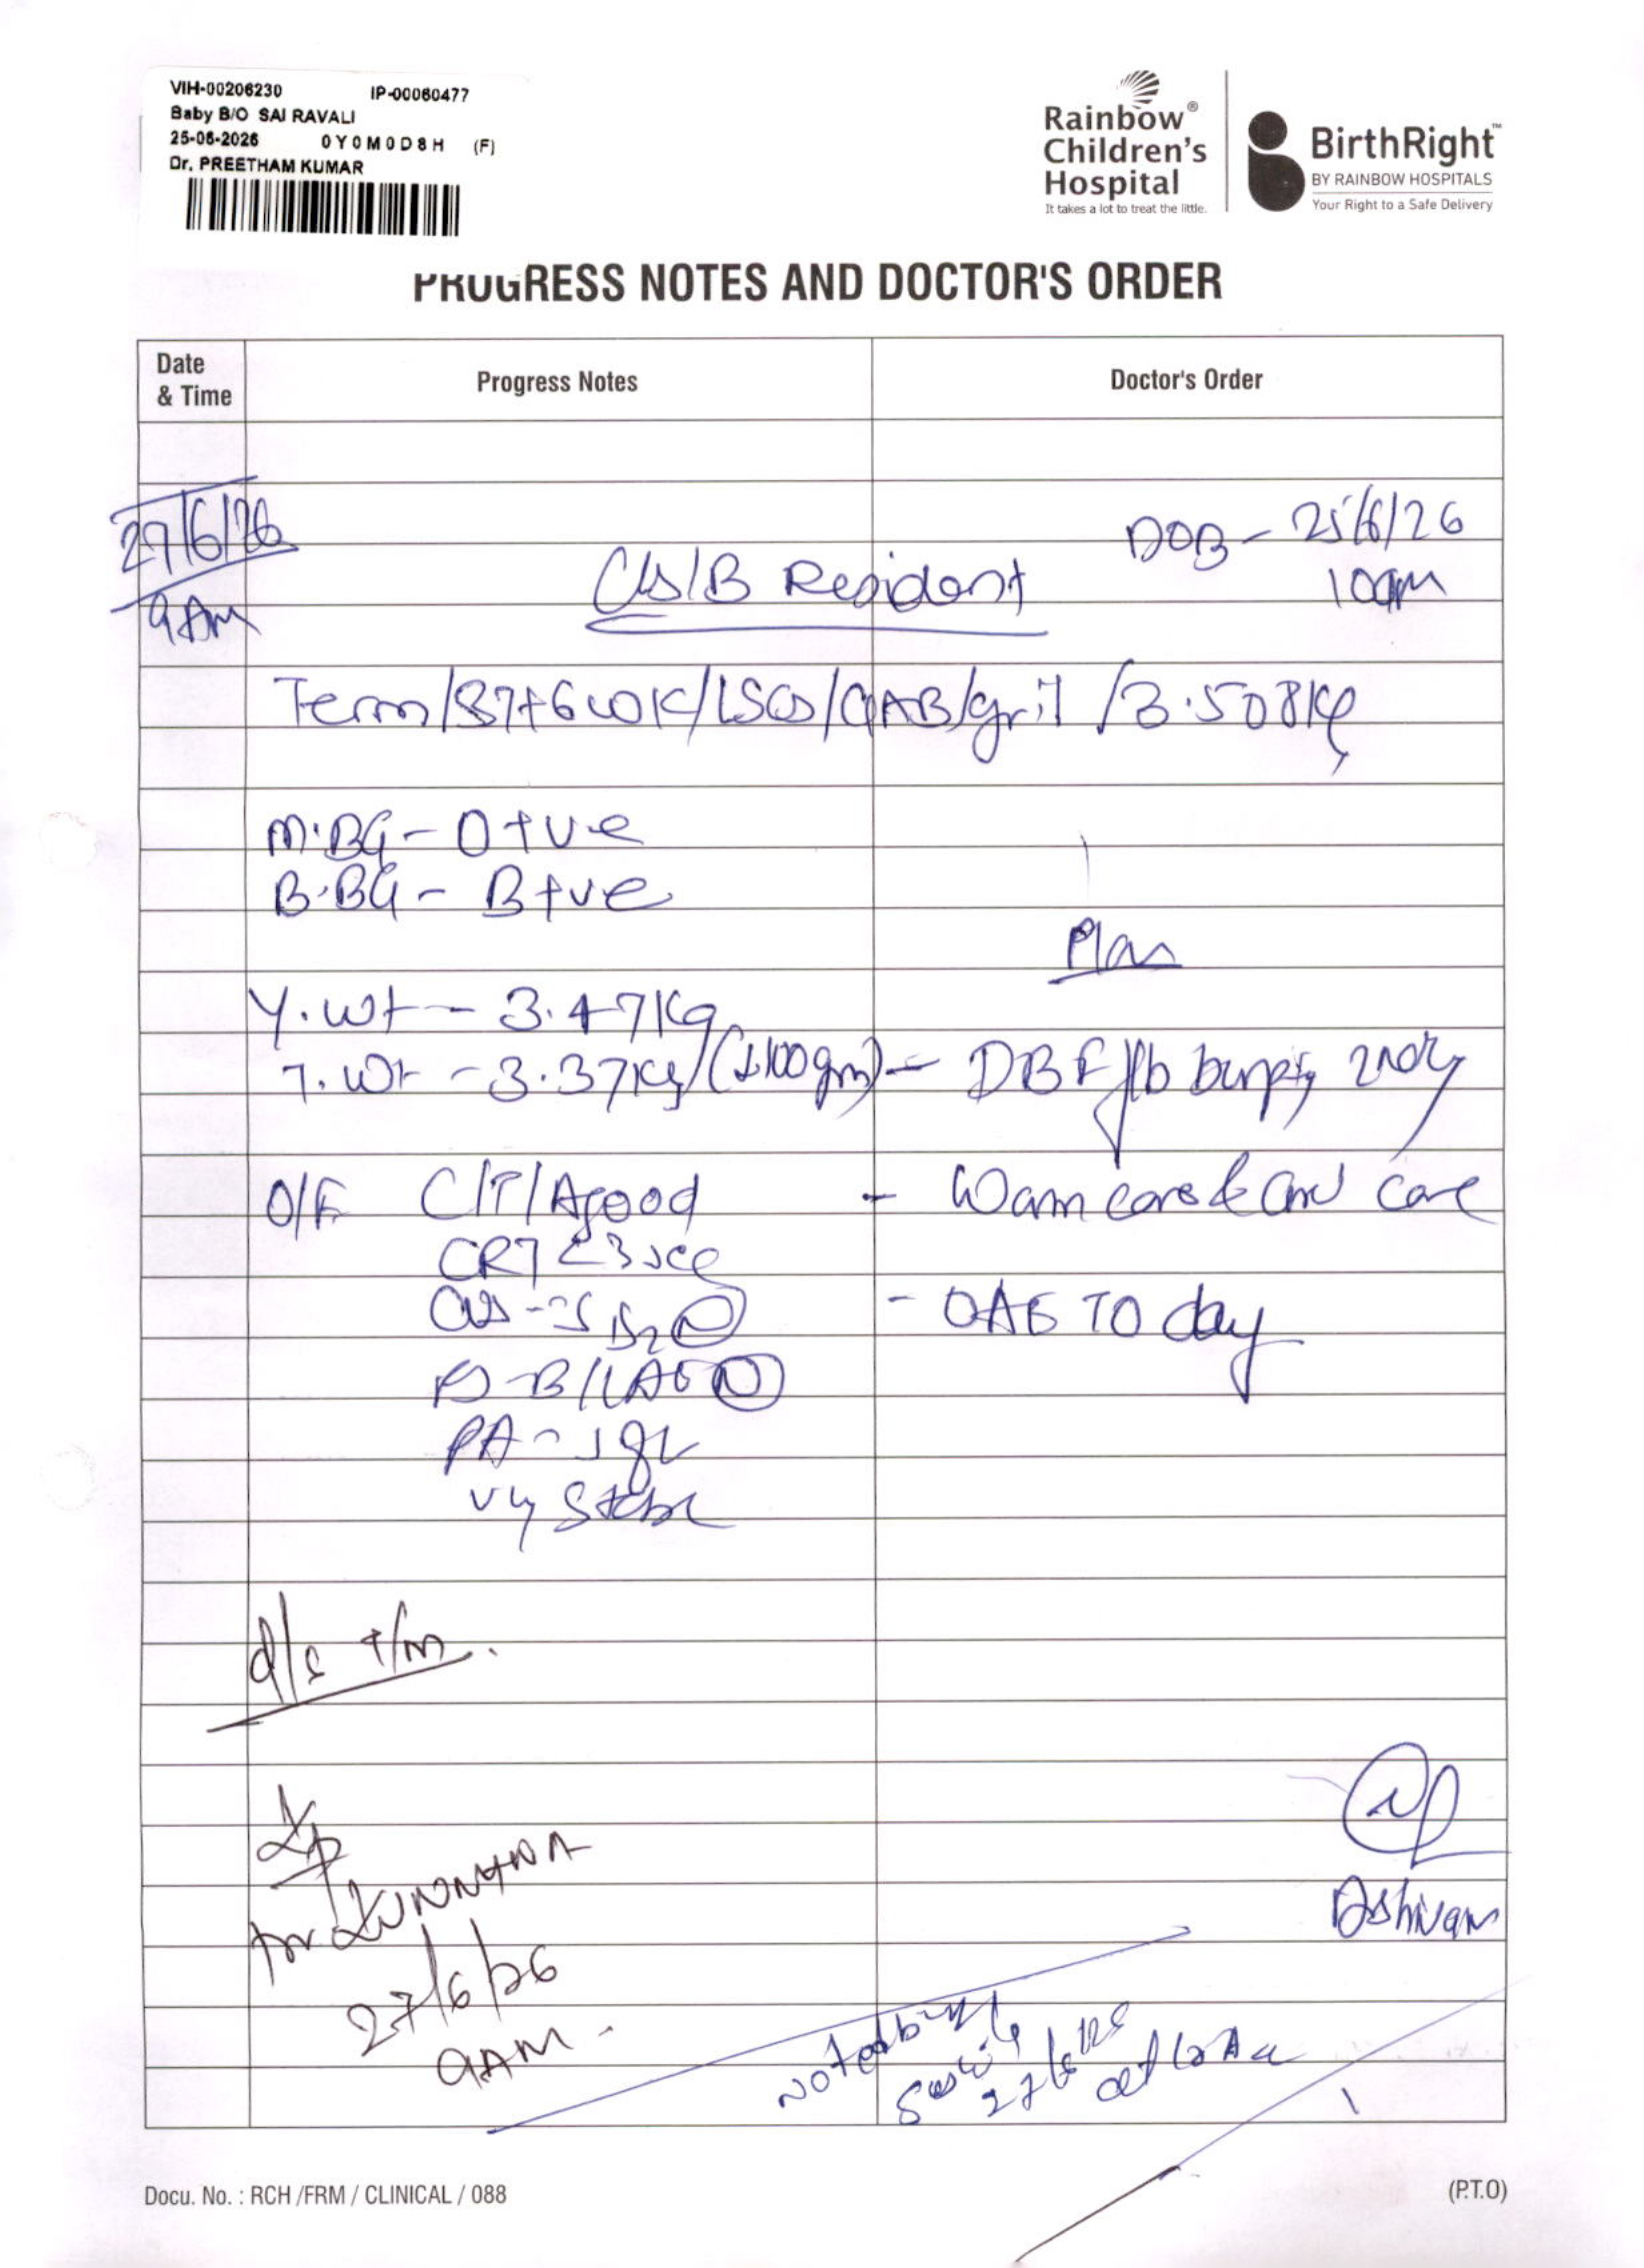 VIH-00206230 IP-00060477
Baby B/O SAI RAVALI
25-06-2026 0Y0M0D8H (F)
Dr. PREETHAM KUMAR
Rainbow®
Children's
Hospital
It takes a lot to treat the little.
BirthRight™
BY RAINBOW HOSPITALS
Your Right to a Safe Delivery
PROGRESS NOTES AND DOCTOR'S ORDER
Date & Time
Progress Notes
Doctor's Order
27/6/26
9AM
DOB - 25/6/26
10am
C/S/B Resident
Term/37+6wk/LSCS/CIAB/gril/3.508kg
M.BG - O+ve
B.BG - B+ve
Plan
Y.wt - 3.47Kg
T.wt - 3.37Kg (↓100gm)
- DBF f/b burping 2ndly
O/E C/T/A good
- Warm care & cord care
CRT <3 sec
CVS - S1S2 (N)
- OAE TO day
RS - B/L AE (N)
PA - soft
Stable
d/s t/m.
27/6/26
9AM.
Dr Shivam
Noted by
27/6/26
at 10 AM
Docu. No. : RCH /FRM / CLINICAL / 088
(P.T.O)